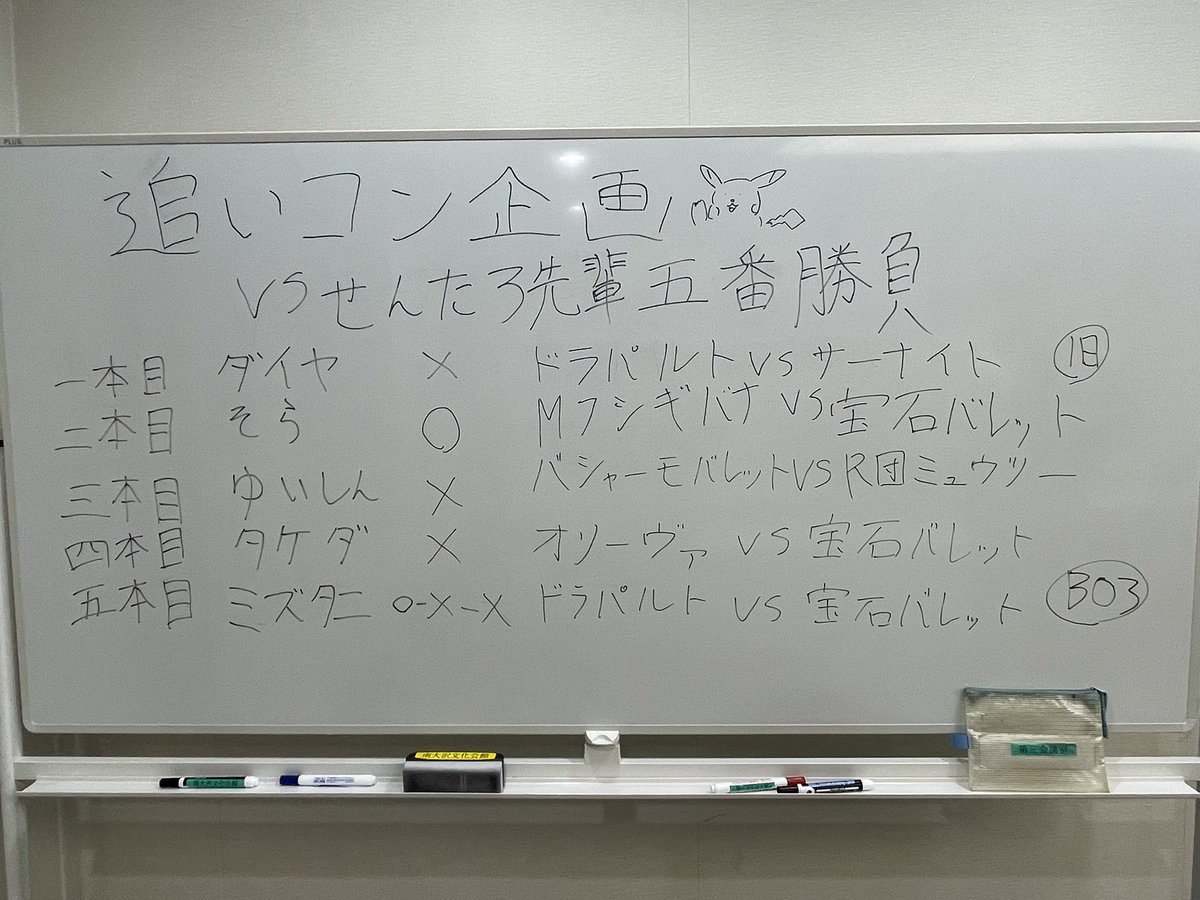 PLUS
追いコン企画
VSせんたろ先輩五番勝負
一本目 ダイヤ × ドラパルトVSサーナイト 旧
二本目 そら ○ MフシギバナVS宝石バレット
三本目 ゆいしん × バシャーモバレットVSR団ミュウツー
四本目 タケダ × オリーヴァ VS 宝石バレット
五本目 ミズタニ ○-×-× ドラパルト VS 宝石バレット BO3
南大沢文化会館
第二会議室